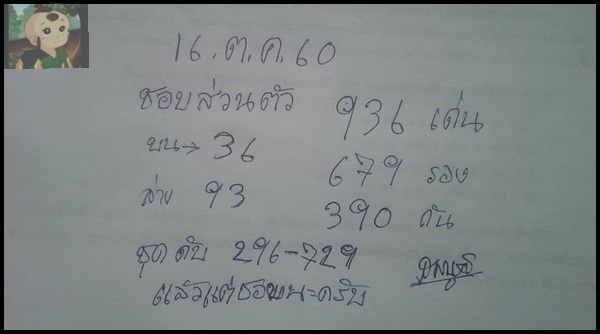 16.ต.ค.60
ชอบส่วนตัว 936 เด่น
บน→36 679 รอง
ล่าง 93 390 กัน
ชุดดับ 296-729
แล้วแต่ชอบนะครับ